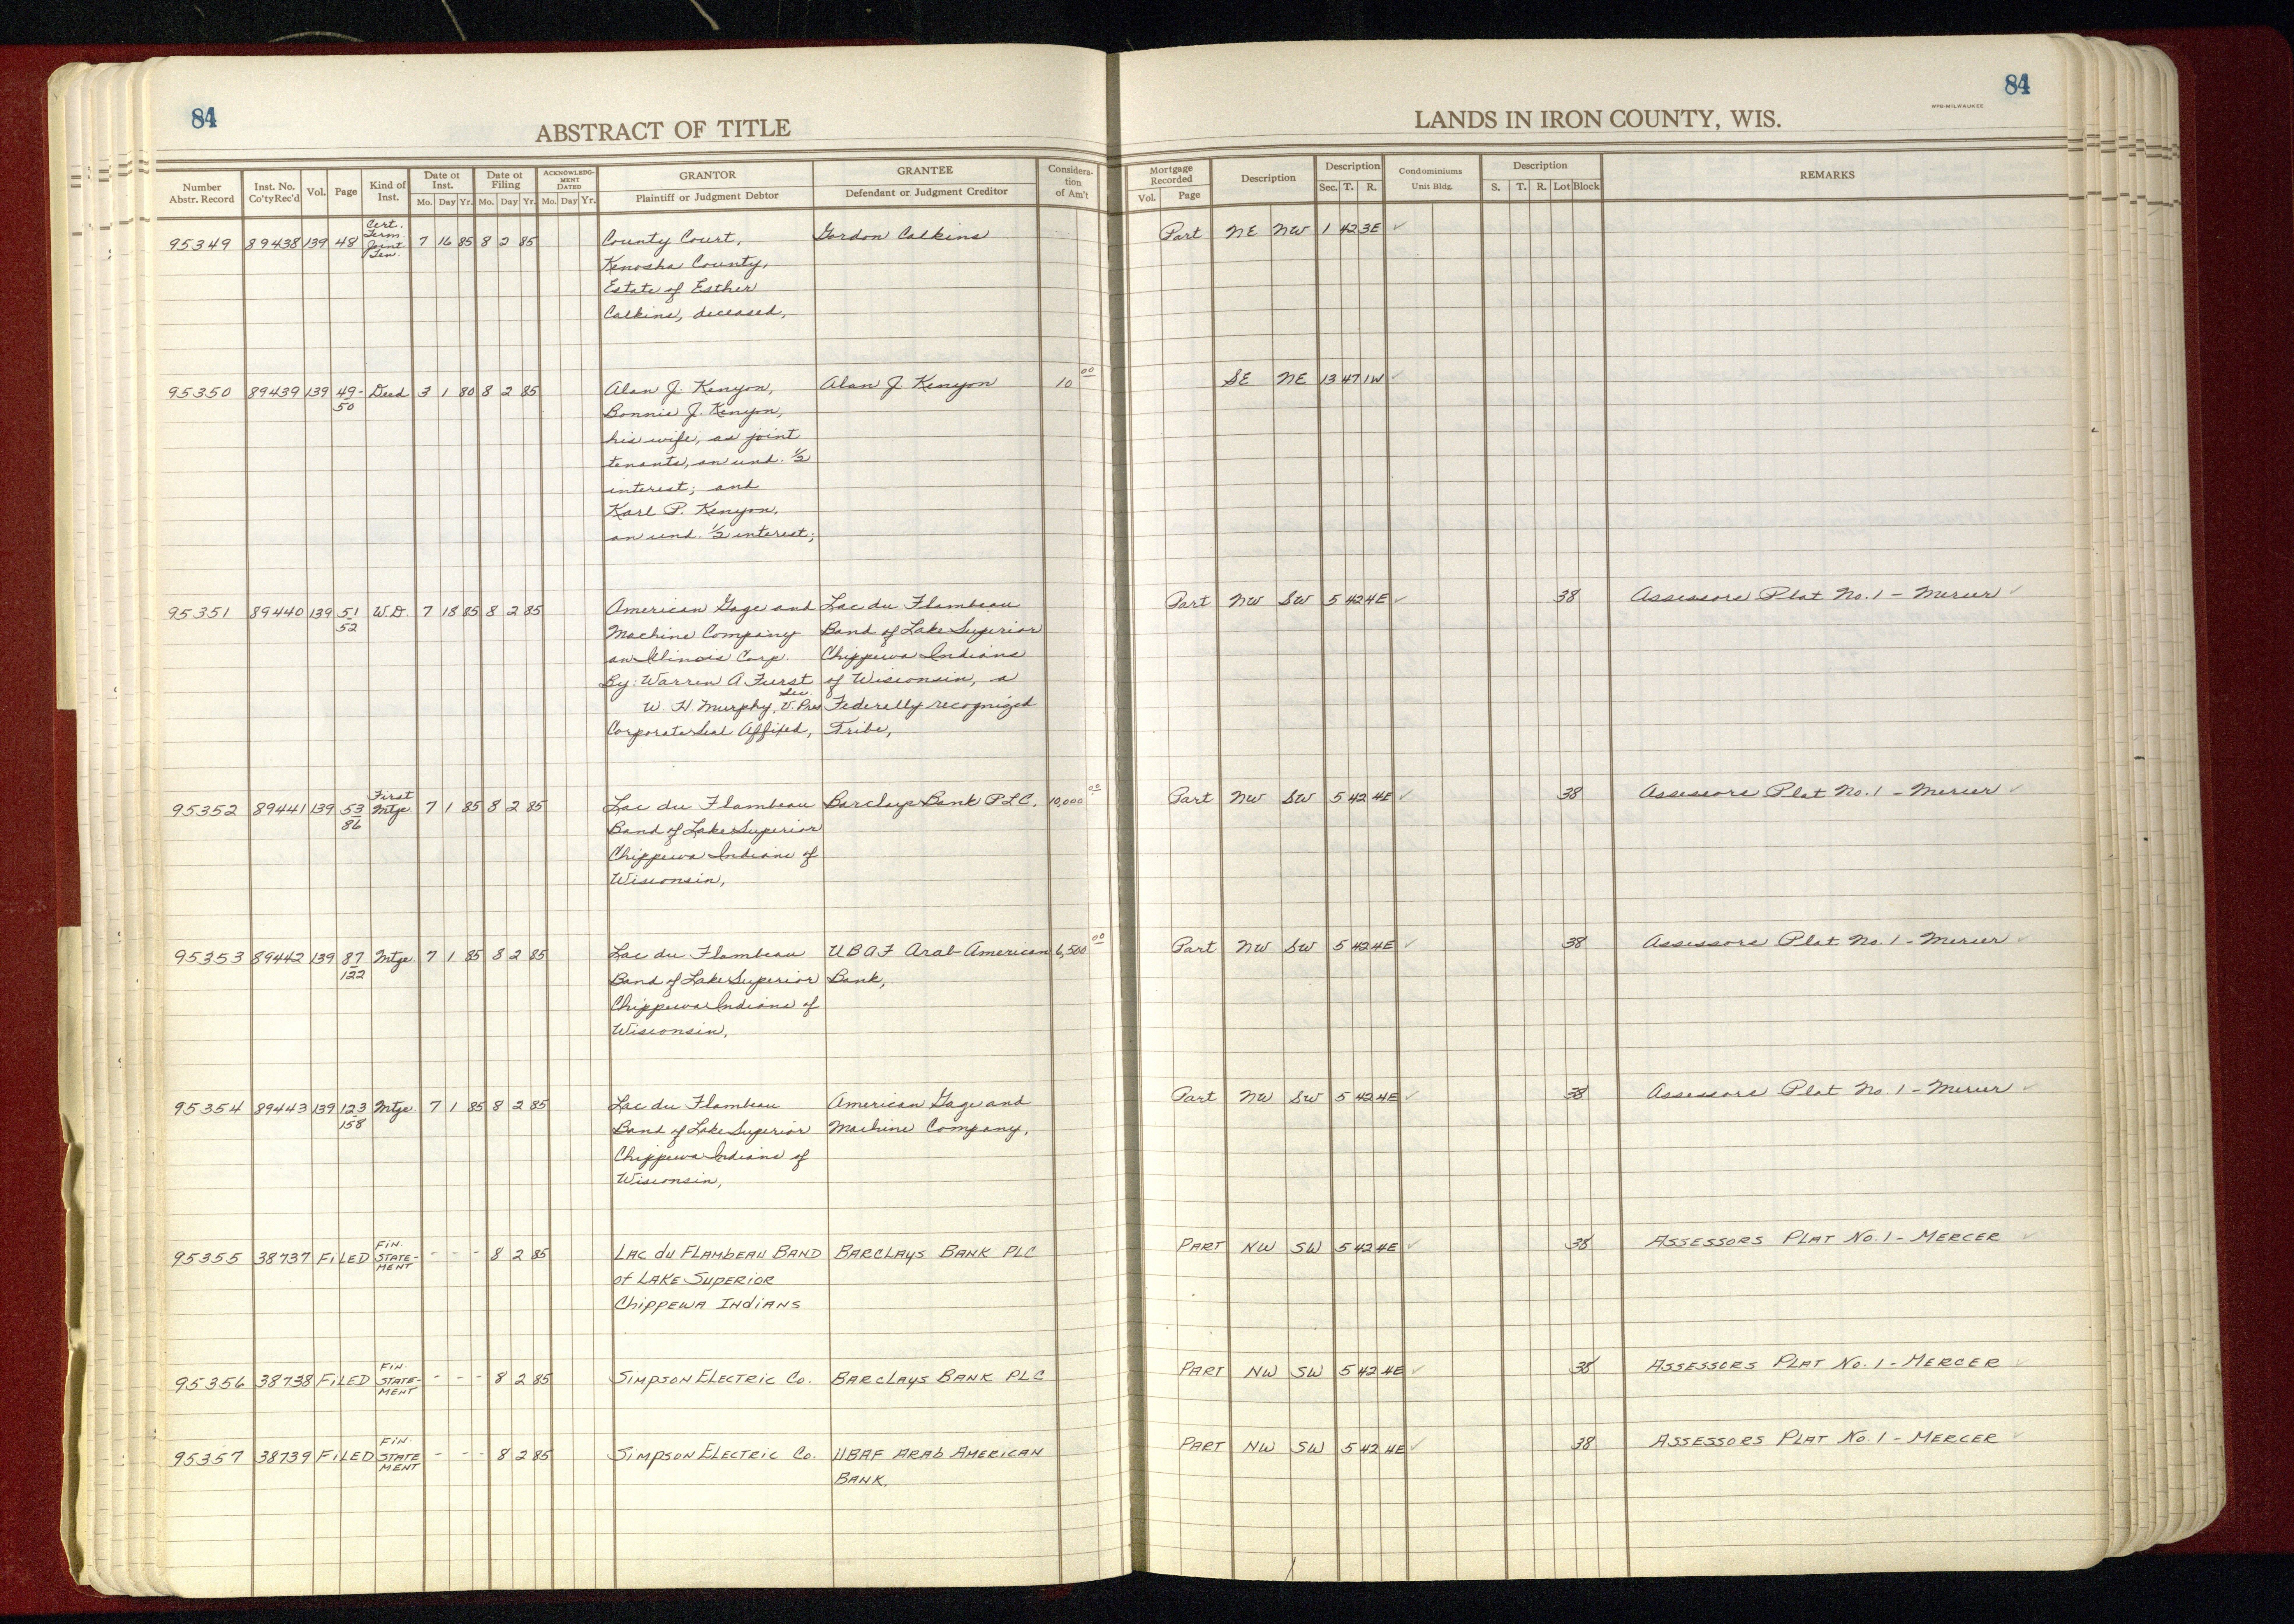 84
84
WPB-MILWAUKEE
ABSTRACT OF TITLE
LANDS IN IRON COUNTY, WIS.
Number Abstr. Record | Inst. No. Co'ty Rec'd | Vol. | Page | Kind of Inst. | Date of Inst. Mo. Day Yr. | Date of Filing Mo. Day Yr. | ACKNOWLEDGMENT DATED Mo. Day Yr. | GRANTOR Plaintiff or Judgment Debtor | GRANTEE Defendant or Judgment Creditor | Consideration of Am't | Mortgage Recorded Vol. Page | Description | Description Sec. T. R. | Condominiums Unit Bldg. | Description S. T. R. Lot Block | REMARKS
95349 89438 139 48 Cert. Term. Joint Ten. 7 16 85 8 2 85 County Court, Gordon Calkins Part NE NW 1 42 3E ✓
Kenosha County,
Estate of Esther
Calkins, deceased,
95350 89439 139 49-50 Deed 3 1 80 8 2 85 Alan J. Kenyon, Alan J. Kenyon 10 00 SE NE 13 47 1W ✓
Bonnie J. Kenyon,
his wife, as joint
tenants, an und. 1/2
interest; and
Karl P. Kenyon,
an und. 1/2 interest;
95351 89440 139 51/52 W.D. 7 18 85 8 2 85 American Gage and Lac du Flambeau Part NW SW 5 42 4E ✓ 38 Assessors Plat No. 1 - Mercer ✓
Machine Company Band of Lake Superior
an Illinois Corp. Chippewa Indians
By: Warren A Furst of Wisconsin, a
Sec.
W. H. Murphy, V. Pres Federally recognized
Corporate Seal Affixed, Tribe,
95352 89441 139 53/86 First Mtge 7 1 85 8 2 85 Lac du Flambeau Barclays Bank PLC. 10,000 00 Part NW SW 5 42 4E ✓ 38 Assessors Plat No. 1 - Mercer ✓
Band of Lake Superior
Chippewa Indians of
Wisconsin,
95353 89442 139 87/122 Mtge 7 1 85 8 2 85 Lac du Flambeau UBAF Arab-American 6,500 00 Part NW SW 5 42 4E ✓ 38 Assessors Plat No. 1 - Mercer ✓
Band of Lake Superior Bank,
Chippewa Indians of
Wisconsin,
95354 89443 139 123/158 Mtge 7 1 85 8 2 85 Lac du Flambeau American Gage and Part NW SW 5 42 4E ✓ 38 Assessors Plat No. 1 - Mercer ✓
Band of Lake Superior Machine Company,
Chippewa Indians of
Wisconsin,
95355 38737 FILED FIN. STATE-MENT - - - 8 2 85 LAC du FLAMBEAU BAND BARCLAYS BANK PLC PART NW SW 5 42 4E ✓ 38 ASSESSORS PLAT No. 1 - MERCER ✓
of LAKE SUPERIOR
CHIPPEWA INDIANS
95356 38738 FILED FIN. STATE-MENT - - - 8 2 85 SIMPSON ELECTRIC Co. BARCLAYS BANK PLC PART NW SW 5 42 4E ✓ 38 ASSESSORS PLAT No. 1 - MERCER ✓
95357 38739 FILED FIN. STATE MENT - - - 8 2 85 SIMPSON ELECTRIC Co. UBAF ARAB AMERICAN PART NW SW 5 42 4E ✓ 38 ASSESSORS PLAT No. 1 - MERCER ✓
BANK.